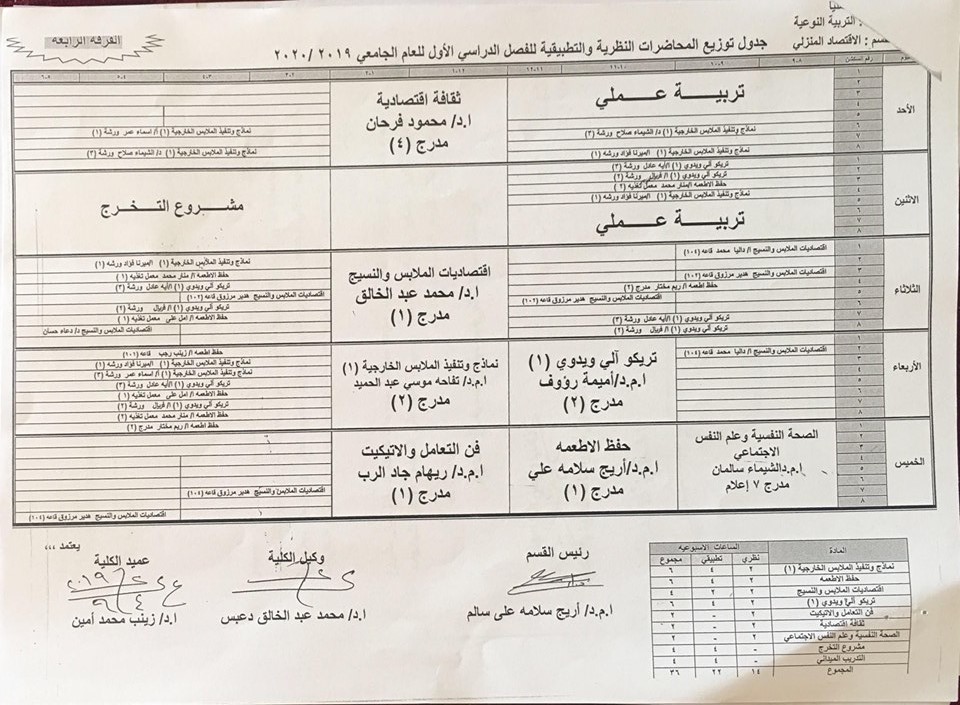 : التربية النوعية
قسم : الاقتصاد المنزلي
الفرقه الرابعه
جدول توزيع المحاضرات النظرية والتطبيقية للفصل الدراسي الأول للعام الجامعي ٢٠١٩ / ٢٠٢٠
رقم السكشن
الأحد
١
٢
٣
٤
٥
٦
٧
٨
تربيـــة عـــملي
نماذج وتنفيذ الملابس الخارجية (١) د/ الشيماء صلاح ورشة (٣)
نماذج وتنفيذ الملابس الخارجية (١) ا/ميرنا فؤاد ورشه (١)
ثقافة اقتصادية
ا.د/ محمود فرحان
مدرج (٤)
نماذج وتنفيذ الملابس الخارجية (١) أ/ اسماء عمر ورشة (١)
نماذج وتنفيذ الملابس الخارجية (١) د/ الشيماء صلاح ورشة (٣)
الاثنين
١
٢
٣
٤
٥
٦
٧
٨
تريكو آلي ويدوي (١) ا/ايه عادل ورشة (٣)
تريكو آلي ويدوي (١) ا/ فيبال ورشة (٢)
حفظ الاطعمه ا/منار محمد معمل تغذيه (٢)
نماذج وتنفيذ الملابس الخارجية (١) ا/ميرنا فؤاد ورشه (١)
تربيـــة عـــملي
مشـــروع التـــخرج
الثلاثاء
١
٢
٣
٤
٥
٦
٧
٨
اقتصاديات الملابس والنسيج د/ داليا محمد قاعه (١٠٤)
اقتصاديات الملابس والنسيج هدير مرزوق قاعه (١٠٢)
حفظ الاطعمه ا/ ريم مختار مدرج (٢)
اقتصاديات الملابس والنسيج هدير مرزوق قاعه (١٠٢)
تريكو آلي ويدوي (١) ا/ايه عادل ورشة (٣)
تريكو آلي ويدوي (١) ا/ فيبال ورشة (٢)
اقتصاديات الملابس والنسيج
ا.د/ محمد عبد الخالق
مدرج (١)
نماذج وتنفيذ الملابس الخارجية (١) ا/ميرنا فؤاد ورشه (١)
حفظ الاطعمه ا/ منار محمد معمل تغذيه (١)
تريكو آلي ويدوي (١) ا/ايه عادل ورشة (٣)
اقتصاديات الملابس والنسيج هدير مرزوق قاعه (١٠٢)
تريكو آلي ويدوي (١) ا/ فيبال ورشة (٢)
حفظ الاطعمه ا/ امل علي معمل تغذيه (١)
اقتصاديات الملابس والنسيج د/ دعاء حسان
الأربعاء
١
٢
٣
٤
٥
٦
٧
٨
اقتصاديات الملابس والنسيج د/ داليا محمد قاعه (١٠٤)
تريكو آلي ويدوي (١)
ا.م.د/أميمة رؤوف
مدرج (٢)
نماذج وتنفيذ الملابس الخارجية (١)
ا.م.د/ تفاحه موسي عبد الحميد
مدرج (٢)
حفظ اطعمه ا/ زينب رجب قاعه (١٠١)
نماذج وتنفيذ الملابس الخارجية (١) ا/ميرنا فؤاد ورشه (١)
نماذج وتنفيذ الملابس الخارجية (١) أ/ اسماء عمر ورشة (٣)
تريكو آلي ويدوي (١) ا/ايه عادل ورشة (٣)
حفظ الاطعمه ا/ امل علي معمل تغذيه (١)
تريكو آلي ويدوي (١) ا/ فيبال ورشة (٢)
حفظ الاطعمه ا/ منار محمد معمل تغذيه (٢)
حفظ اطعمه ا/ ريم مختار مدرج (٢)
الخميس
١
٢
٣
٤
٥
٦
٧
٨
الصحة النفسية وعلم النفس
الاجتماعي
ا.م.د/الشيماء سالمان
مدرج ٧ إعلام
حفظ الاطعمه
ا.م.د/أريج سلامه علي
مدرج (١)
فن التعامل والاتيكيت
ا.م.د/ ريهام جاد الرب
مدرج (١)
اقتصاديات الملابس والنسيج هدير مرزوق قاعه (١٠٤)
اقتصاديات الملابس والنسيج هدير مرزوق قاعه (١٠٤)
المادة
الساعات الاسبوعيه
نظري تطبيقي مجموع
نماذج وتنفيذ الملابس الخارجية (١) ٢ ٤ ٦
حفظ الاطعمه ٢ ٤ ٦
اقتصاديات الملابس والنسيج ٢ ٢ ٤
تريكو آلي ويدوي (١) ٢ ٤ ٦
فن التعامل والاتيكيت ٢ - ٢
ثقافة اقتصادية ٢ - ٢
الصحة النفسية وعلم النفس الاجتماعي ٢ - ٢
مشروع التخرج - ٤ ٤
التدريب الميداني - ٤ ٤
المجموع ١٤ ٢٢ ٣٦
رئيس القسم
ا.م.د/ أريج سلامه على سالم
وكيل الكلية
ا.د/ محمد عبد الخالق دعبس
يعتمد ،،،
عميد الكلية
ا.د/ زينب محمد أمين